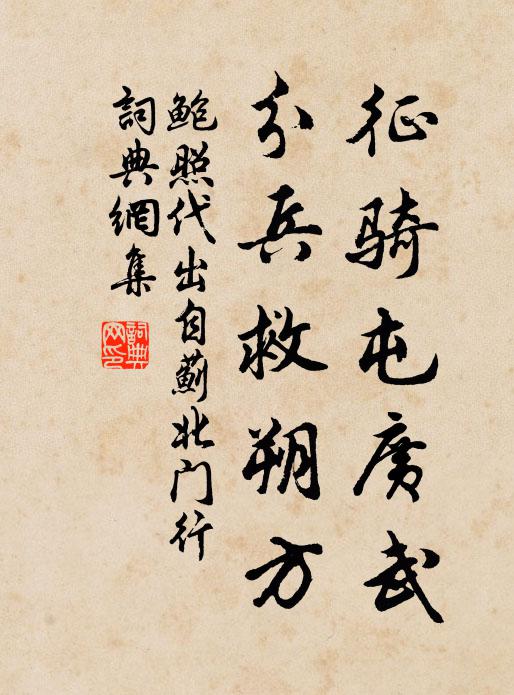 征骑屯廣武
分兵救朔方
鲍照代出自薊北门行
詞典網集
詞典網印